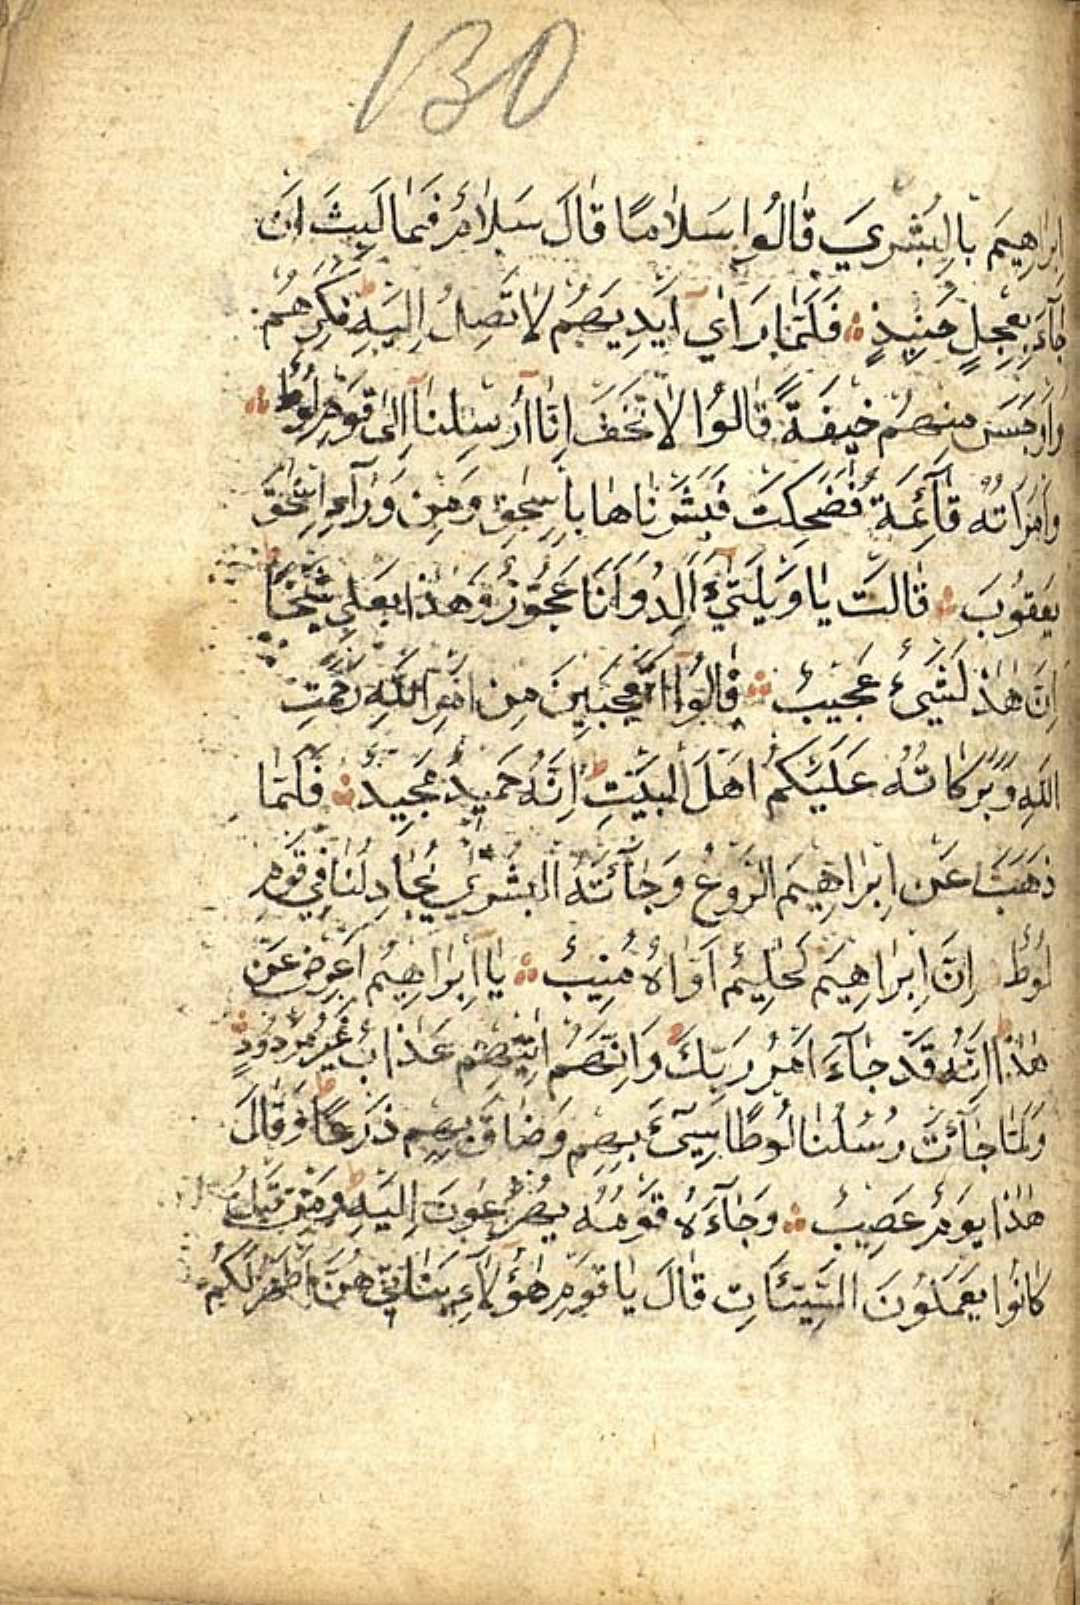 130
اِبْرَاهِيمَ بِالْبُشْرَي قَالُوا سَلَامًا قَالَ سَلَامٌ فَمَا لَبِثَ اَنْ
جَآءَ بِعِجْلٍ حَنِيذٍ فَلَمَّا رَاٰي اَيْدِيَهُمْ لَا تَصِلُ اِلَيْهِ نَكِرَهُمْ
وَاَوْجَسَ مِنْهُمْ خِيفَةً قَالُوا لَا تَخَفْ اِنَّٓا اُرْسِلْنَٓا اِلٰى قَوْمِ لُوطٍ
وَامْرَاَتُهُ قَآئِمَةٌ فَضَحِكَتْ فَبَشَّرْنَاهَا بِاِسْحٰقَ وَمِنْ وَرَآءِ اِسْحٰقَ
يَعْقُوبَ قَالَتْ يَا وَيْلَتٰٓي ءَاَلِدُ وَاَنَا عَجُوزٌ وَهٰذَا بَعْلِي شَيْخًا
اِنَّ هٰذَا لَشَيْءٌ عَجِيبٌ قَالُٓوا اَتَعْجَبِينَ مِنْ اَمْرِ اللّٰهِ رَحْمَتُ
اللّٰهِ وَبَرَكَاتُهُ عَلَيْكُمْ اَهْلَ الْبَيْتِ اِنَّهُ حَمِيدٌ مَجِيدٌ فَلَمَّا
ذَهَبَ عَنْ اِبْرَاهِيمَ الرَّوْعُ وَجَآءَتْهُ الْبُشْرٰي يُجَادِلُنَا فِي قَوْمِ
لُوطٍ اِنَّ اِبْرَاهِيمَ لَحَلِيمٌ اَوَّاهٌ مُنِيبٌ يَٓا اِبْرَاهِيمُ اَعْرِضْ عَنْ
هٰذَا اِنَّهُ قَدْ جَآءَ اَمْرُ رَبِّكَ وَاِنَّهُمْ اٰتِيهِمْ عَذَابٌ غَيْرُ مَرْدُودٍ
وَلَمَّا جَآءَتْ رُسُلُنَا لُوطًا سِٓيءَ بِهِمْ وَضَاقَ بِهِمْ ذَرْعًا وَقَالَ
هٰذَا يَوْمٌ عَصِيبٌ وَجَآءَهُ قَوْمُهُ يُهْرَعُونَ اِلَيْهِ وَمِنْ قَبْلُ
كَانُوا يَعْمَلُونَ السَّيِّئَاتِ قَالَ يَا قَوْمِ هٰٓؤُلَٓاءِ بَنَاتِي هُنَّ اَطْهَرُ لَكُمْ